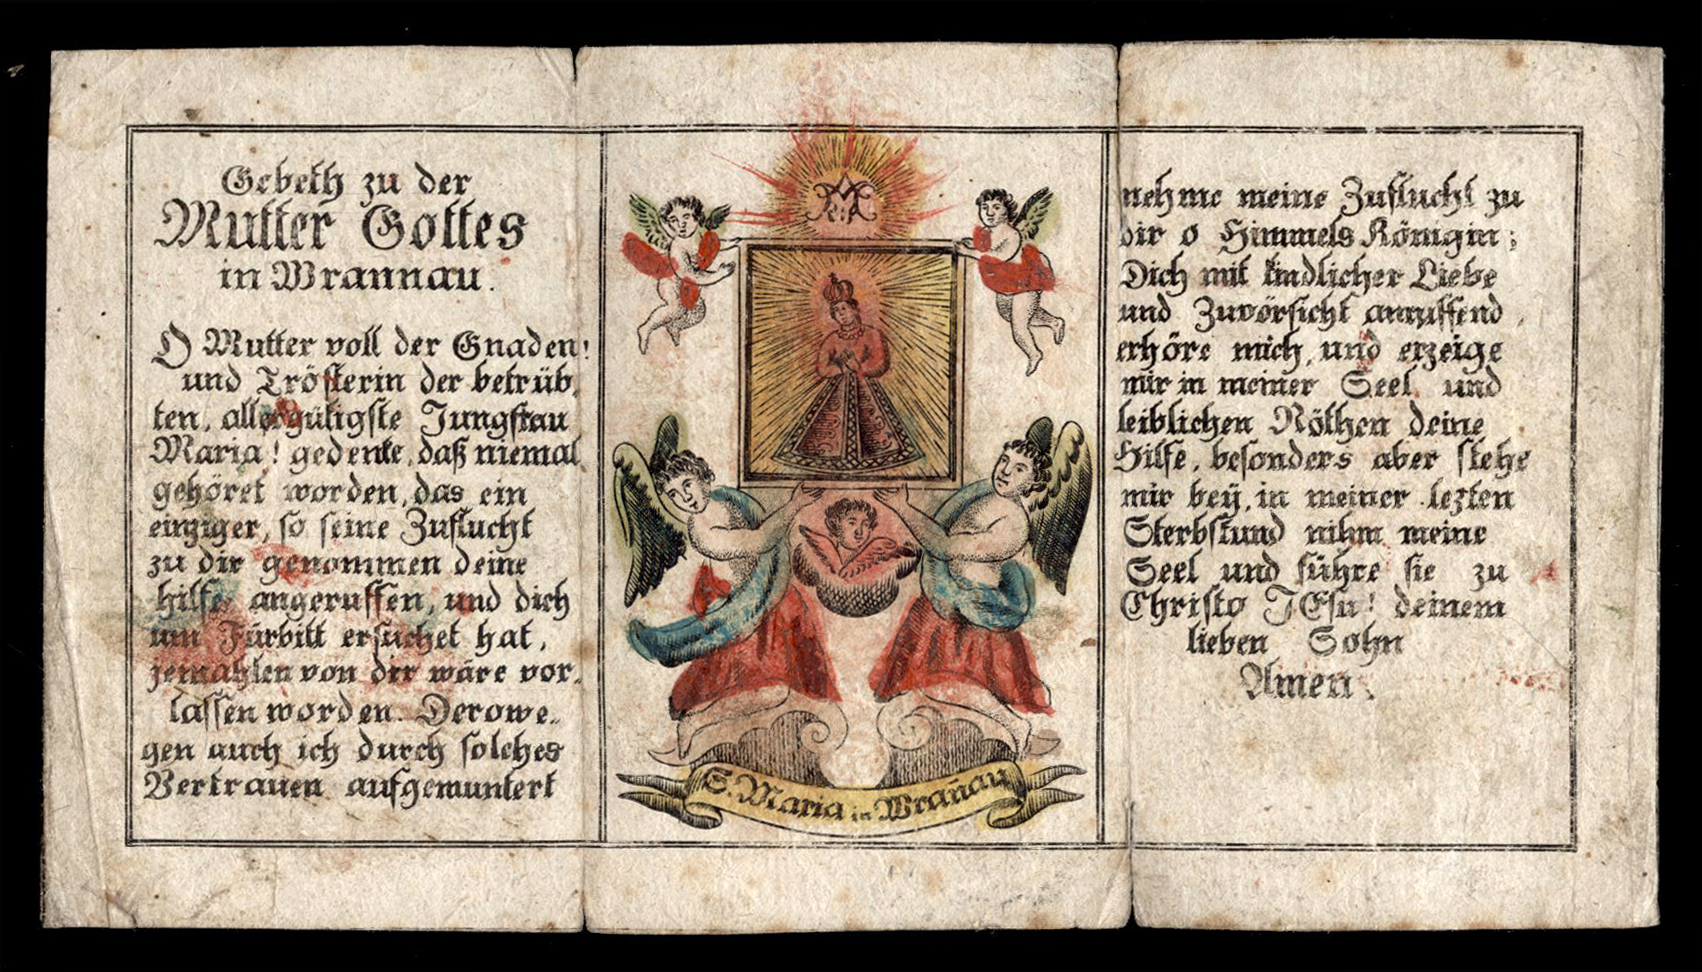 Gebeth zu der
Mutter Gottes
in Wrannau.
O Mutter voll der Gnaden!
und Trösterin der betrüb,
ten, allergütigste Jungfrau
Maria! gedenke, daß niemal
gehöret worden, das ein
einziger, so seine Zuflucht
zu dir genommen deine
hilfe angeruffen, und dich
um Fürbitt ersuchet hat,
jemahlen von dir wäre vor,
lassen worden. Derowe,
gen auch ich durch solches
Vertrauen aufgemuntert
MRA
S. Maria in Wrañau
nehme meine Zuflucht zu
dir o Himmels Königin;
Dich mit kindlicher Liebe
und Zuvörsicht anruffend,
erhöre mich, und erzeige
mir in meiner Seel und
leiblichen Nöthen deine
Hilfe, besonders aber stehe
mir beÿ, in meiner lezten
Sterbstund nihm meine
Seel und führe sie zu
Christo JEsu! deinem
lieben Sohn
Amen.